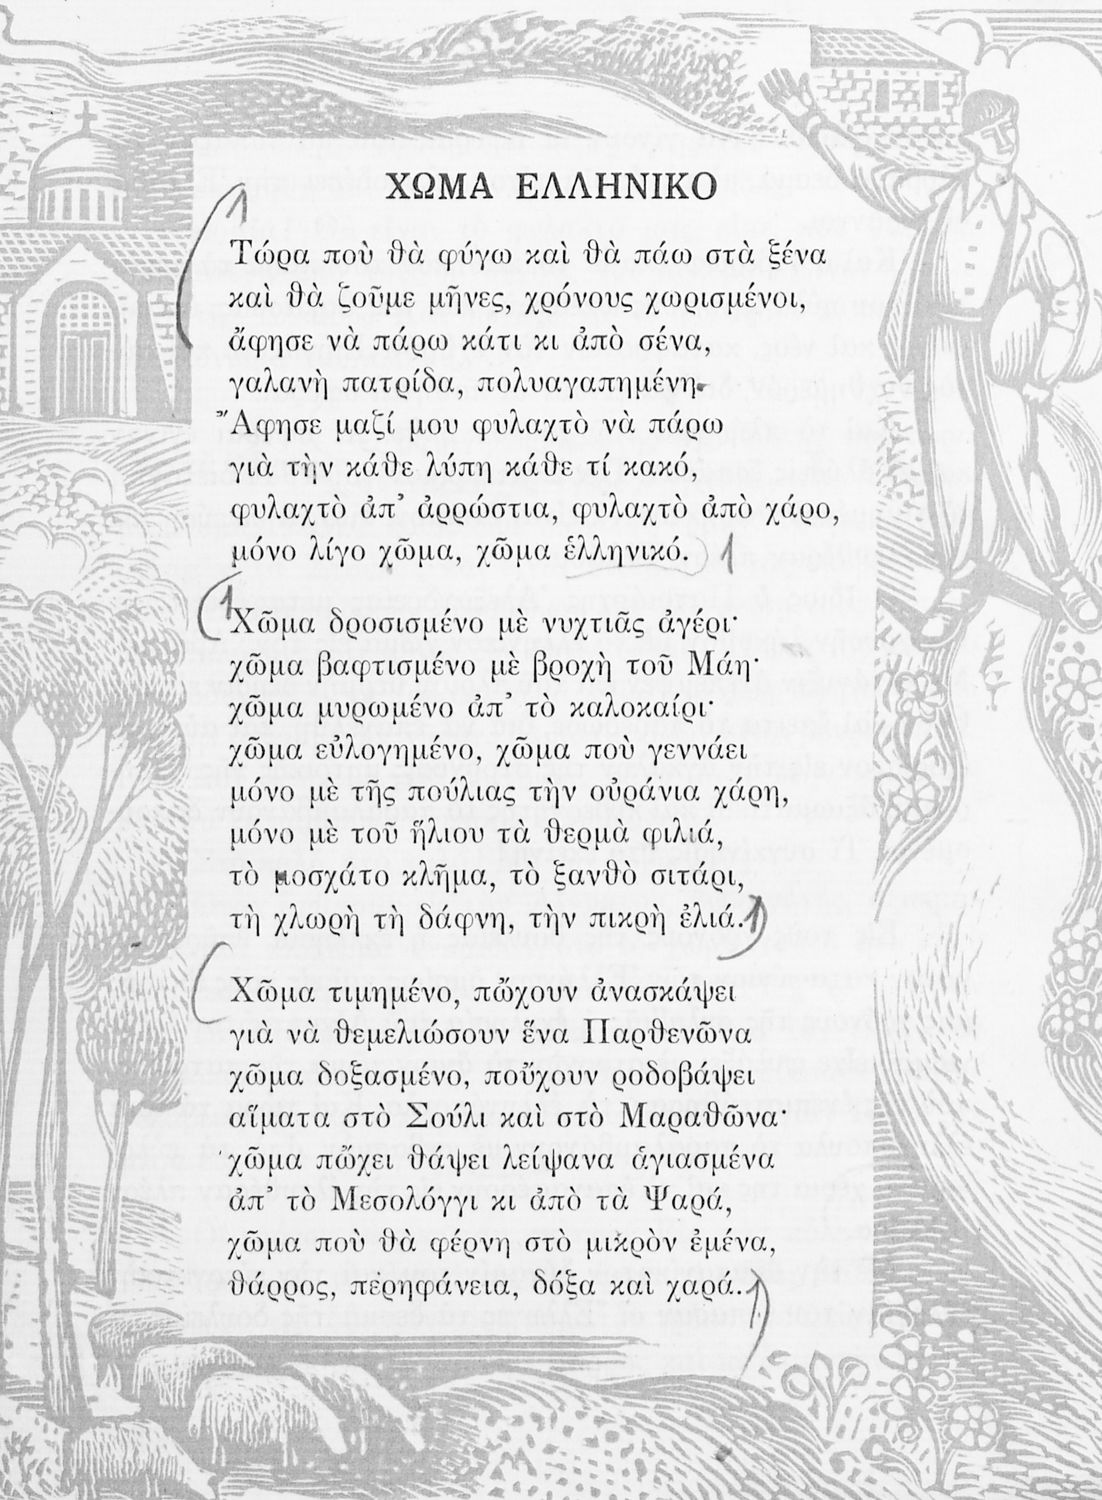 ΧΩΜΑ ΕΛΛΗΝΙΚΟ
1
Τώρα ποὺ θὰ φύγω καὶ θὰ πάω στὰ ξένα
καὶ θὰ ζοῦμε μῆνες, χρόνους χωρισμένοι,
ἄφησε νὰ πάρω κάτι κι ἀπὸ σένα,
γαλανὴ πατρίδα, πολυαγαπημένη·
Ἄφησε μαζί μου φυλαχτὸ νὰ πάρω
γιὰ τὴν κάθε λύπη κάθε τί κακό,
φυλαχτὸ ἀπ’ ἀρρώστια, φυλαχτὸ ἀπὸ χάρο,
μόνο λίγο χῶμα, χῶμα ἑλληνικό. 1
1
Χῶμα δροσισμένο μὲ νυχτιᾶς ἀγέρι·
χῶμα βαφτισμένο μὲ βροχὴ τοῦ Μάη·
χῶμα μυρωμένο ἀπ’ τὸ καλοκαίρι·
χῶμα εὐλογημένο, χῶμα ποὺ γεννάει
μόνο μὲ τῆς πούλιας τὴν οὐράνια χάρη,
μόνο μὲ τοῦ ἥλιου τὰ θερμὰ φιλιά,
τὸ μοσχάτο κλῆμα, τὸ ξανθὸ σιτάρι,
τὴ χλωρὴ τὴ δάφνη, τὴν πικρὴ ἐλιά. 1
Χῶμα τιμημένο, πὤχουν ἀνασκάψει
γιὰ νὰ θεμελιώσουν ἕνα Παρθενῶνα
χῶμα δοξασμένο, ποὔχουν ροδοβάψει
αἵματα στὸ Σούλι καὶ στὸ Μαραθῶνα·
χῶμα πὤχει θάψει λείψανα ἁγιασμένα
ἀπ’ τὸ Μεσολόγγι κι ἀπὸ τὰ Ψαρά,
χῶμα ποὺ θὰ φέρνη στὸ μικρὸν ἐμένα,
θάρρος, περηφάνεια, δόξα καὶ χαρά. 1